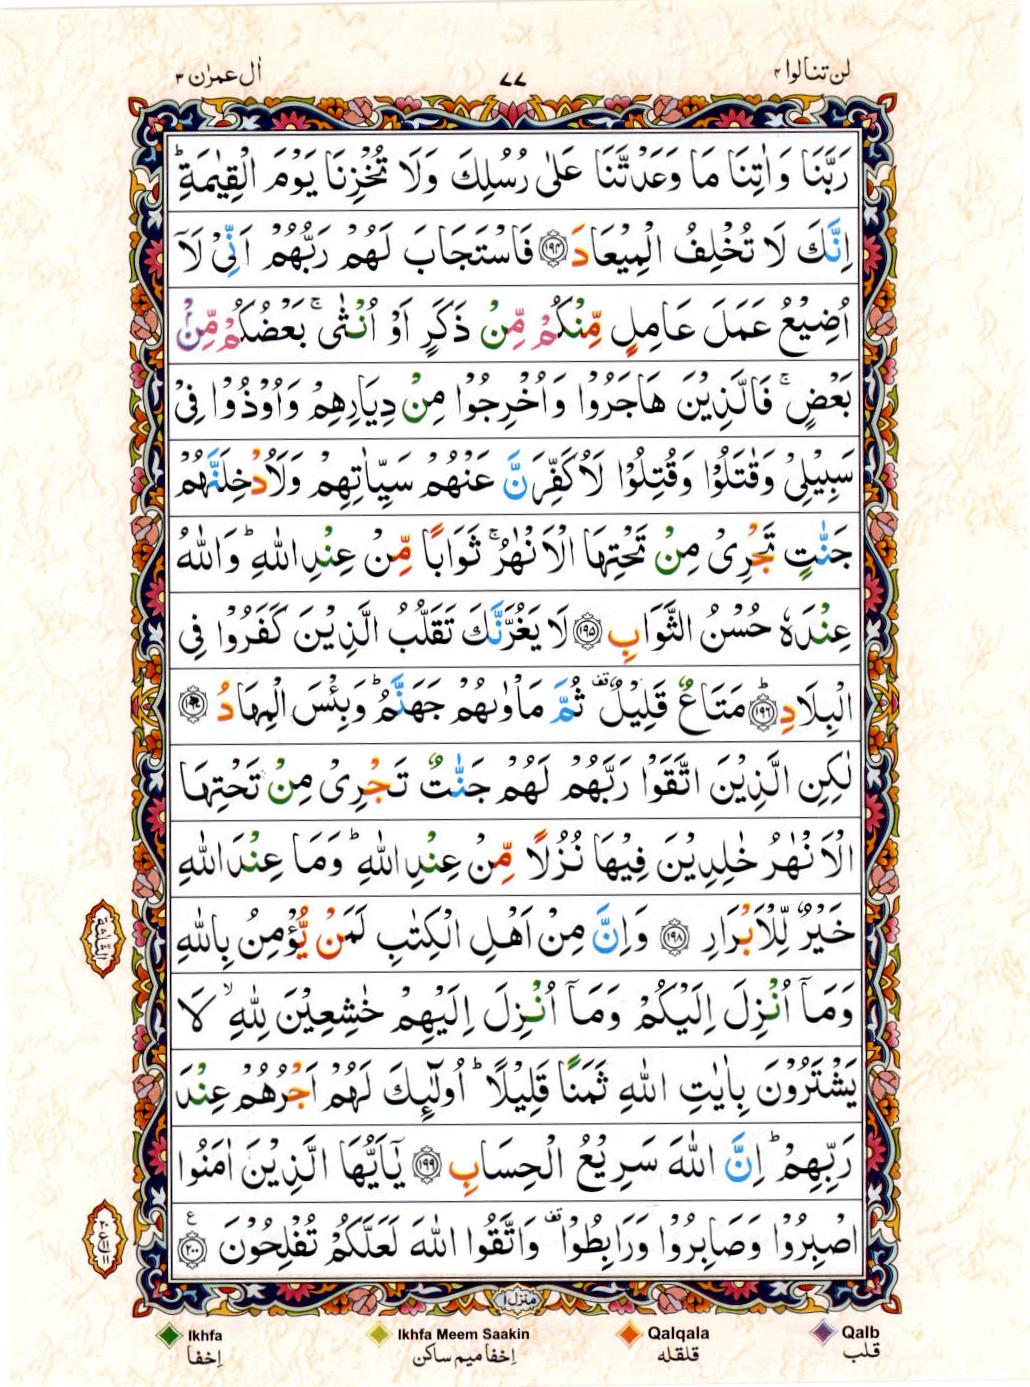 لن تنالوا ۴
۷۷
اٰل عمرٰن ۳
رَبَّنَا وَ اٰتِنَا مَا وَعَدْتَّنَا عَلٰى رُسُلِكَ وَلَا تُخْزِنَا يَوْمَ الْقِيٰمَةِ ؕ
اِنَّكَ لَا تُخْلِفُ الْمِيْعَادَ ﴿۱۹۴﴾ فَاسْتَجَابَ لَهُمْ رَبُّهُمْ اَنِّىْ لَاۤ
اُضِيْعُ عَمَلَ عَامِلٍ مِّنْكُمْ مِّنْ ذَكَرٍ اَوْ اُنْثٰى ۚ بَعْضُكُمْ مِّنْۢ
بَعْضٍ ۚ فَالَّذِيْنَ هَاجَرُوْا وَاُخْرِجُوْا مِنْ دِيَارِهِمْ وَاُوْذُوْا فِىْ
سَبِيْلِىْ وَقٰتَلُوْا وَقُتِلُوْا لَاُكَفِّرَنَّ عَنْهُمْ سَيِّاٰتِهِمْ وَلَاُدْخِلَنَّهُمْ
جَنّٰتٍ تَجْرِىْ مِنْ تَحْتِهَا الْاَنْهٰرُ ۚ ثَوَابًا مِّنْ عِنْدِ اللّٰهِ ؕ وَاللّٰهُ
عِنْدَهٗ حُسْنُ الثَّوَابِ ﴿۱۹۵﴾ لَا يَغُرَّنَّكَ تَقَلُّبُ الَّذِيْنَ كَفَرُوْا فِى
الْبِلَادِ ؕ ﴿۱۹۶﴾ مَتَاعٌ قَلِيْلٌ ۟ ثُمَّ مَاْوٰىهُمْ جَهَنَّمُ ؕ وَبِئْسَ الْمِهَادُ ﴿۱۹۷﴾
لٰكِنِ الَّذِيْنَ اتَّقَوْا رَبَّهُمْ لَهُمْ جَنّٰتٌ تَجْرِىْ مِنْ تَحْتِهَا
الْاَنْهٰرُ خٰلِدِيْنَ فِيْهَا نُزُلًا مِّنْ عِنْدِ اللّٰهِ ؕ وَمَا عِنْدَ اللّٰهِ
خَيْرٌ لِّلْاَبْرَارِ ﴿۱۹۸﴾ وَاِنَّ مِنْ اَهْلِ الْكِتٰبِ لَمَنْ يُّؤْمِنُ بِاللّٰهِ
وَمَاۤ اُنْزِلَ اِلَيْكُمْ وَمَاۤ اُنْزِلَ اِلَيْهِمْ خٰشِعِيْنَ لِلّٰهِ ۙ لَا
يَشْتَرُوْنَ بِاٰيٰتِ اللّٰهِ ثَمَنًا قَلِيْلًا ؕ اُولٰٓئِكَ لَهُمْ اَجْرُهُمْ عِنْدَ
رَبِّهِمْ ؕ اِنَّ اللّٰهَ سَرِيْعُ الْحِسَابِ ﴿۱۹۹﴾ يٰۤاَيُّهَا الَّذِيْنَ اٰمَنُوا
اصْبِرُوْا وَصَابِرُوْا وَرَابِطُوْا ۟ وَاتَّقُوا اللّٰهَ لَعَلَّكُمْ تُفْلِحُوْنَ ﴿۲۰۰﴾ ع
الثلثة
۲۰ ع ۱۱ ۱۱
منزل ۱
Ikhfa
اِخفا
Ikhfa Meem Saakin
اِخفا میم ساکن
Qalqala
قلقله
Qalb
قلب